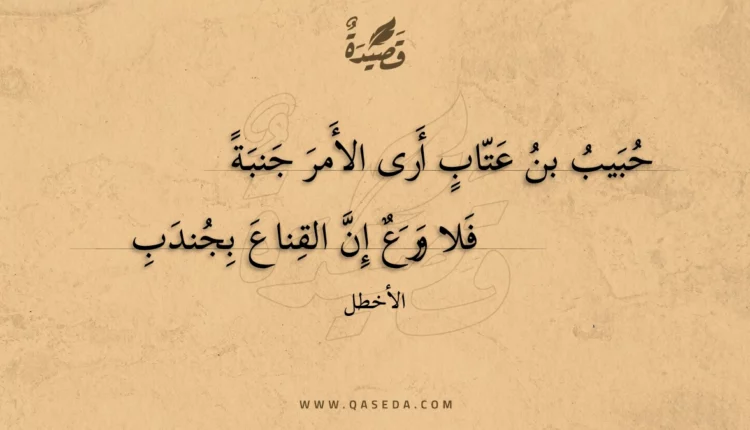 قَصِيدَةٌ
حُبَيبُ بنُ عَتّابٍ أَرى الأَمرَ جَنبَةً
فَلا وَرَعٌ إِنَّ القِناعَ بِجُندَبِ
الأخطل
WWW.QASEDA.COM